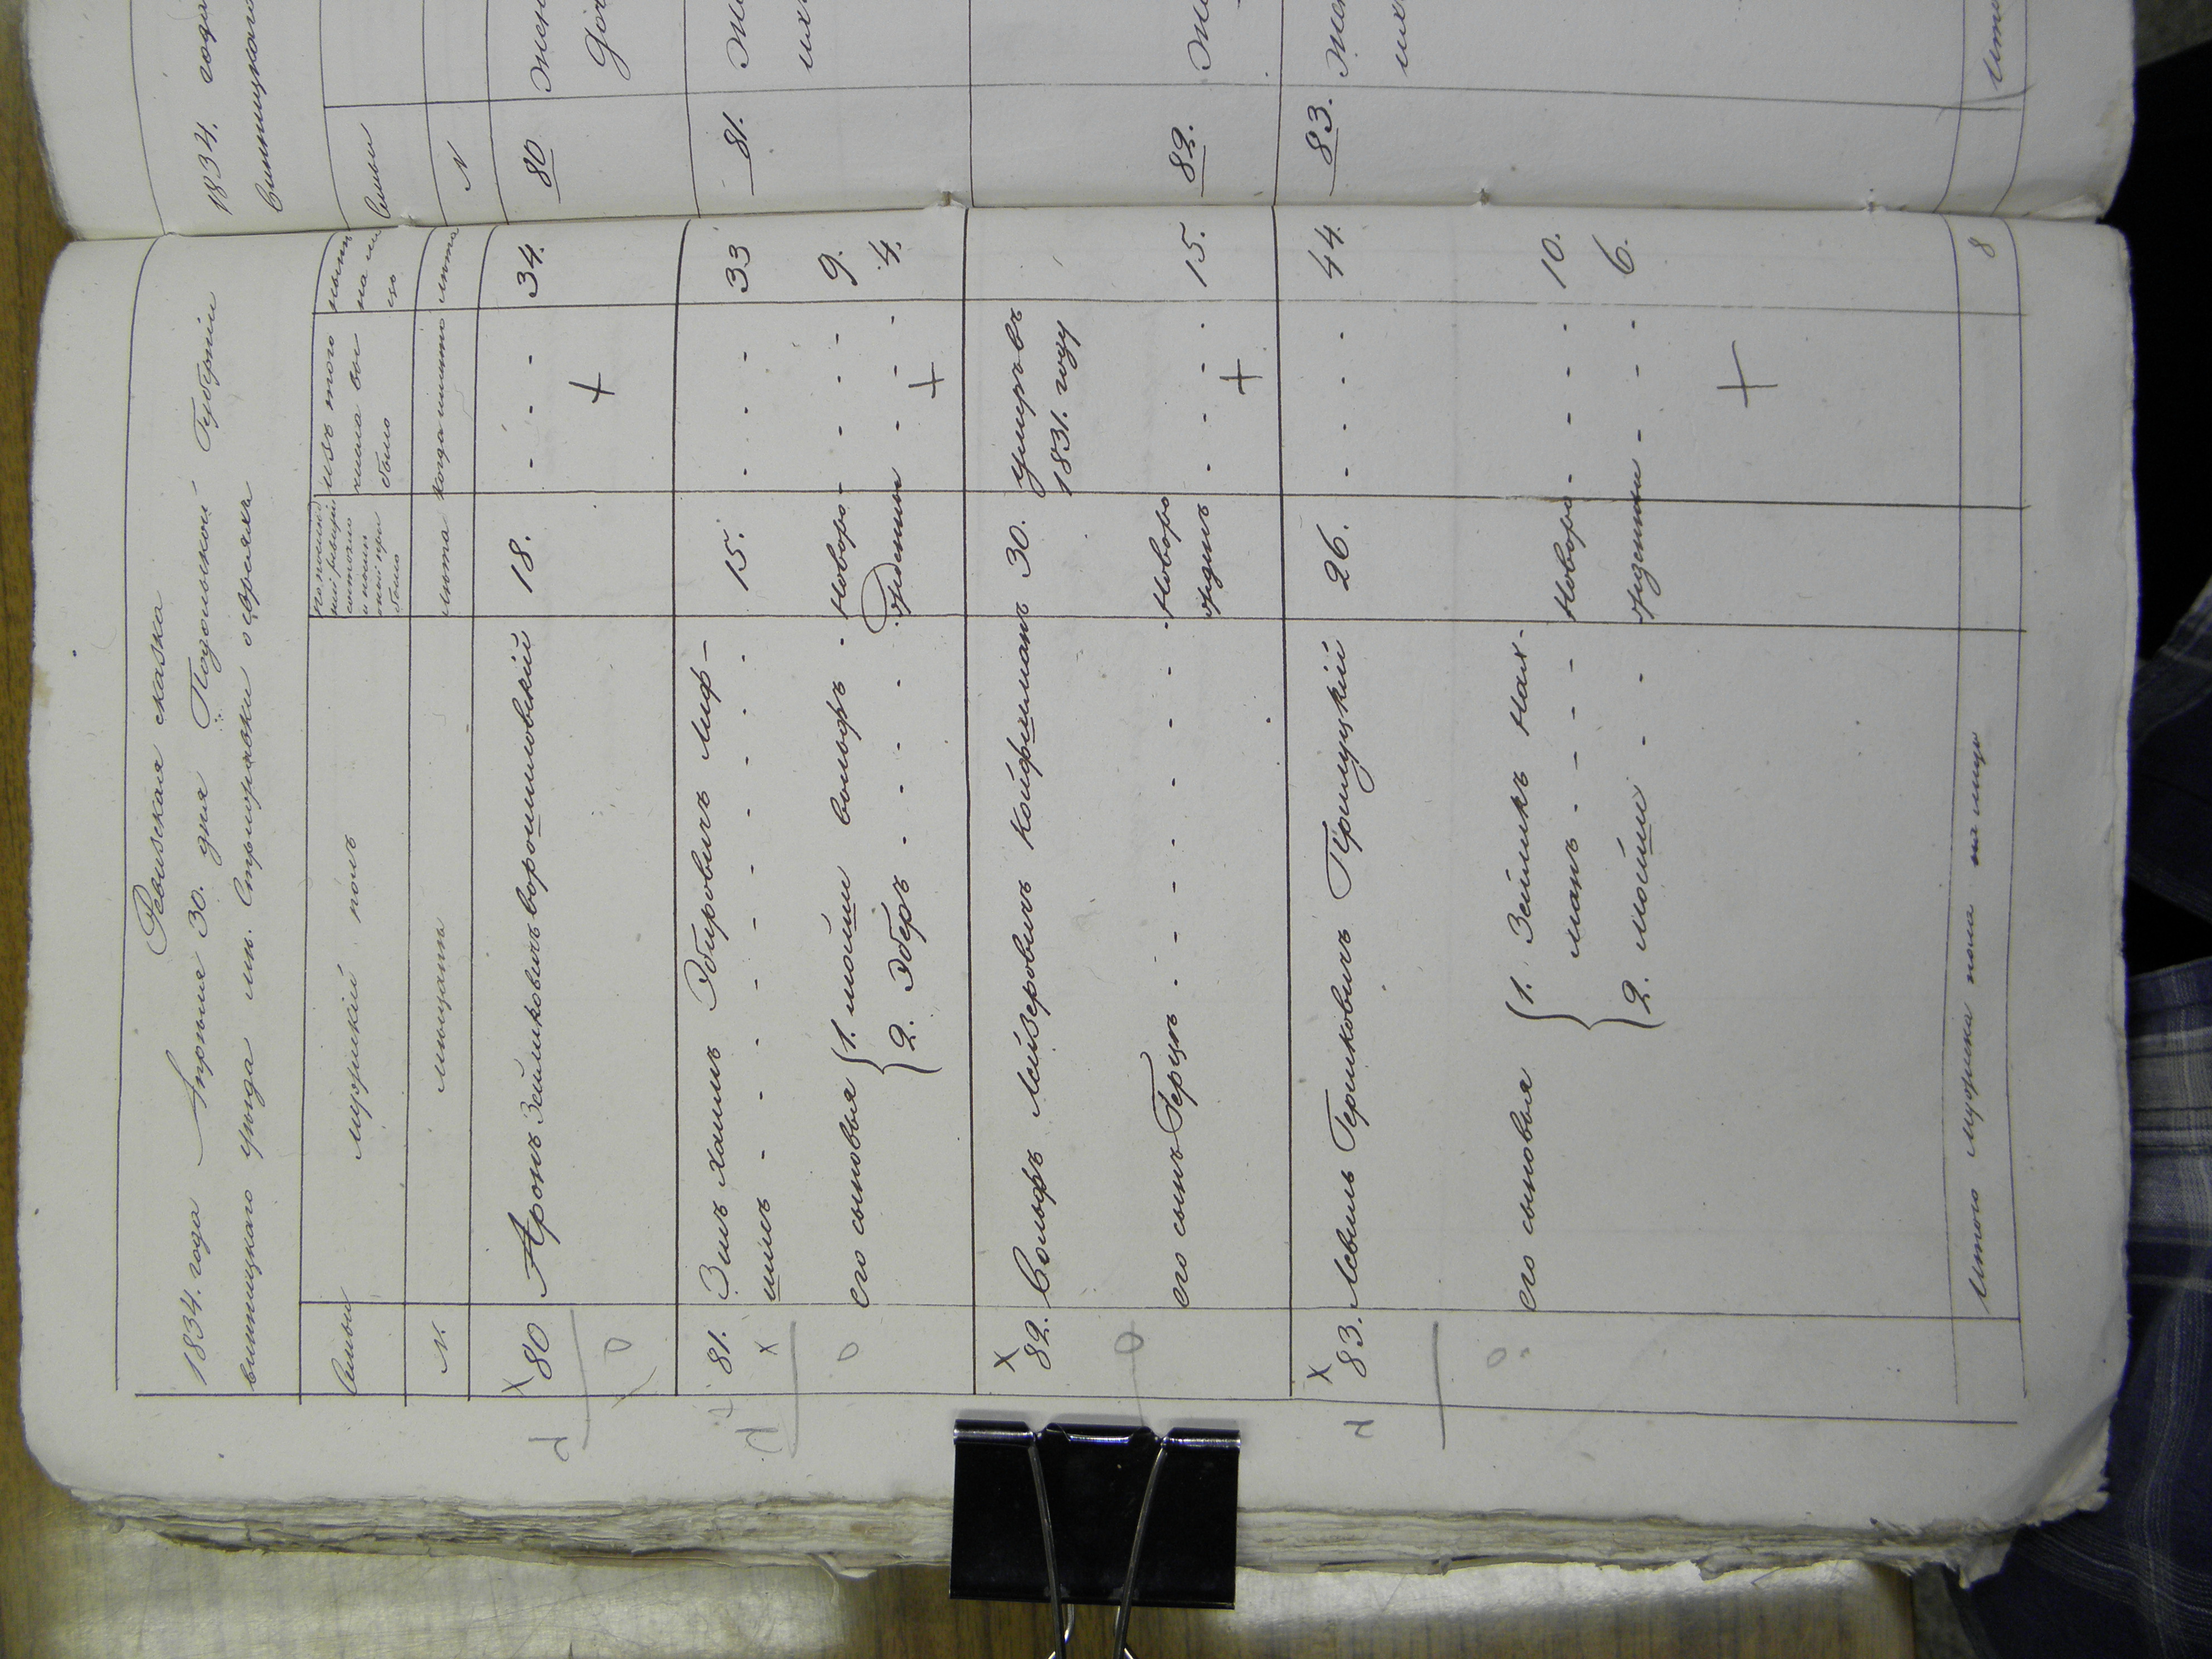 Ревизская сказка
1834. года Апреля 30. дня Подольской Губернии
винницкаго уезда м. Стрижавки о евреяхъ
Семьи
мужескій полъ
по послед
ней ревизіи
состояло
и после
оной при
было
изъ того
числа вы
было
ныне
на ли
цо
N.
мещане
лета
когда имянно
лета
80
Аронъ Зейликовичъ ворошиловскій
18.
- - - -
34.
81.
Зись Хаимъ Эбировичъ Лиф-
15.
- - -
33
шиць - - - - - - - - -
его сыновья
1. мойши вольфъ -
Новоро-
- - -
9.
2. Эберъ - - - -
ждении
- -
4.
82.
Вольфъ Лейзеровичъ Койфшманъ
30.
умеръ въ
1831. году
его сынъ Герцъ - - - - - -
Новоро
ждень
- - - -
15.
83.
Левиль Гершковичъ Прилуцкій
26.
- - - -
44.
его сыновья
1. Зейликъ Нах-
манъ - - - -
Новоро-
- - -
10.
2. мойши - -
жденни
- - -
6.
Итого мужеска пола на лицо
8
1834. года
винницкаго
Семьи
N
80
81.
82.
83.
Итого